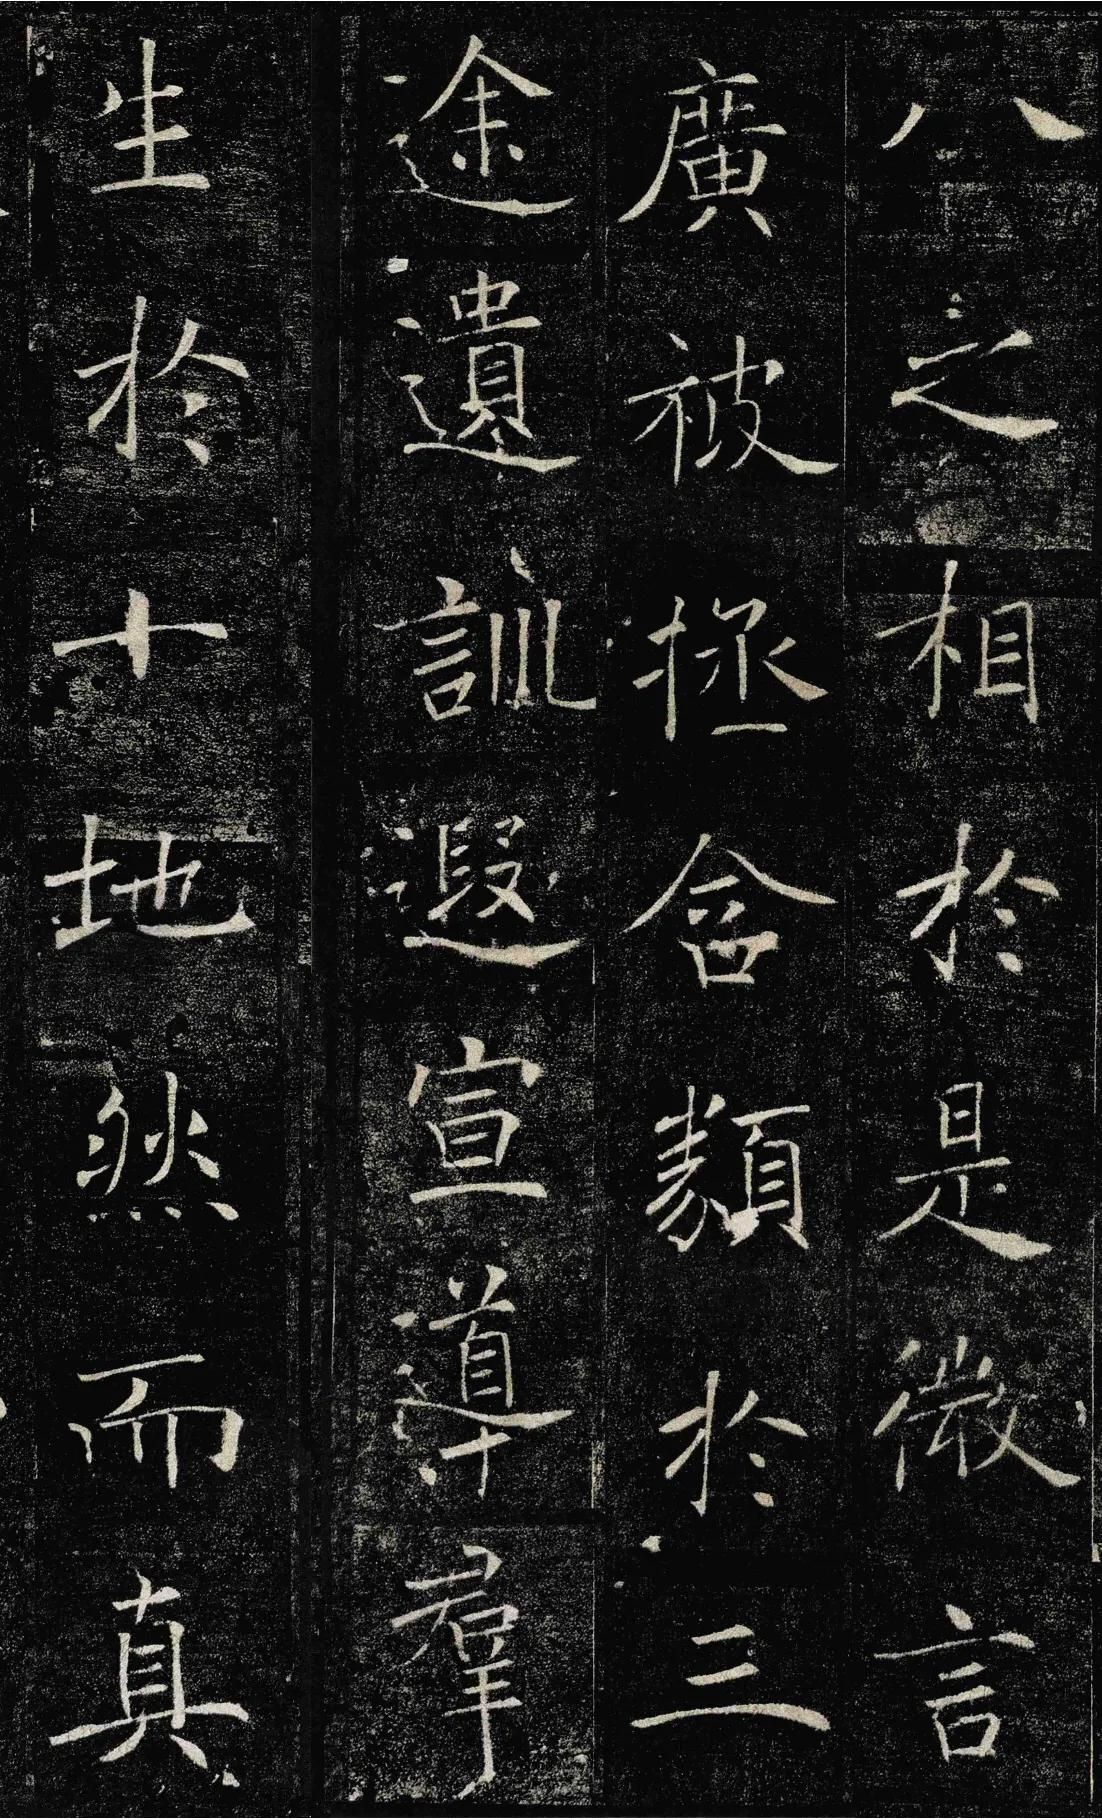 八之相於是微言
廣被拯含類於三
途遺訓遐宣導羣
生於十地然而真